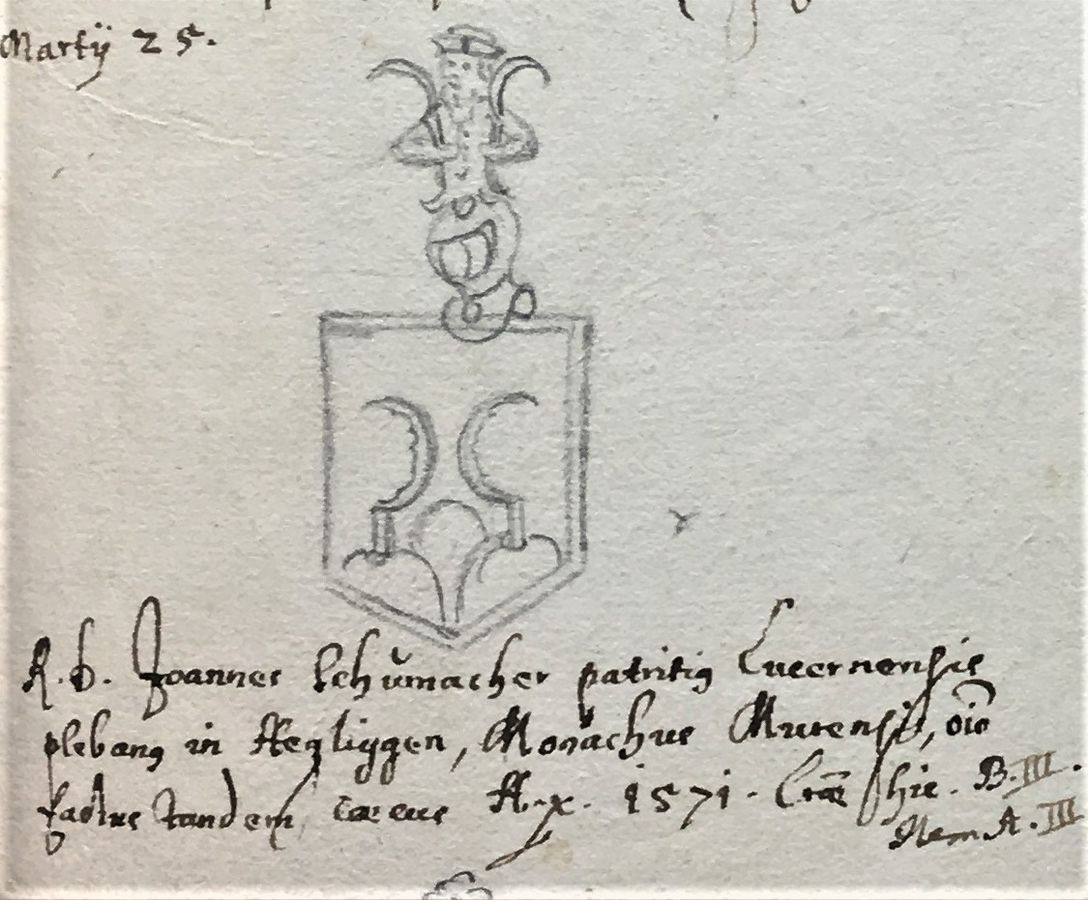 Martÿ 25.
R. D. Joannes Schŭmacher patritiꝯ Lucernensis
plebanꝯ in Aegliggen, Monachus Murensis, oīo
factus tandem cæcus A. 1571. hic. B. III.
Item A. III